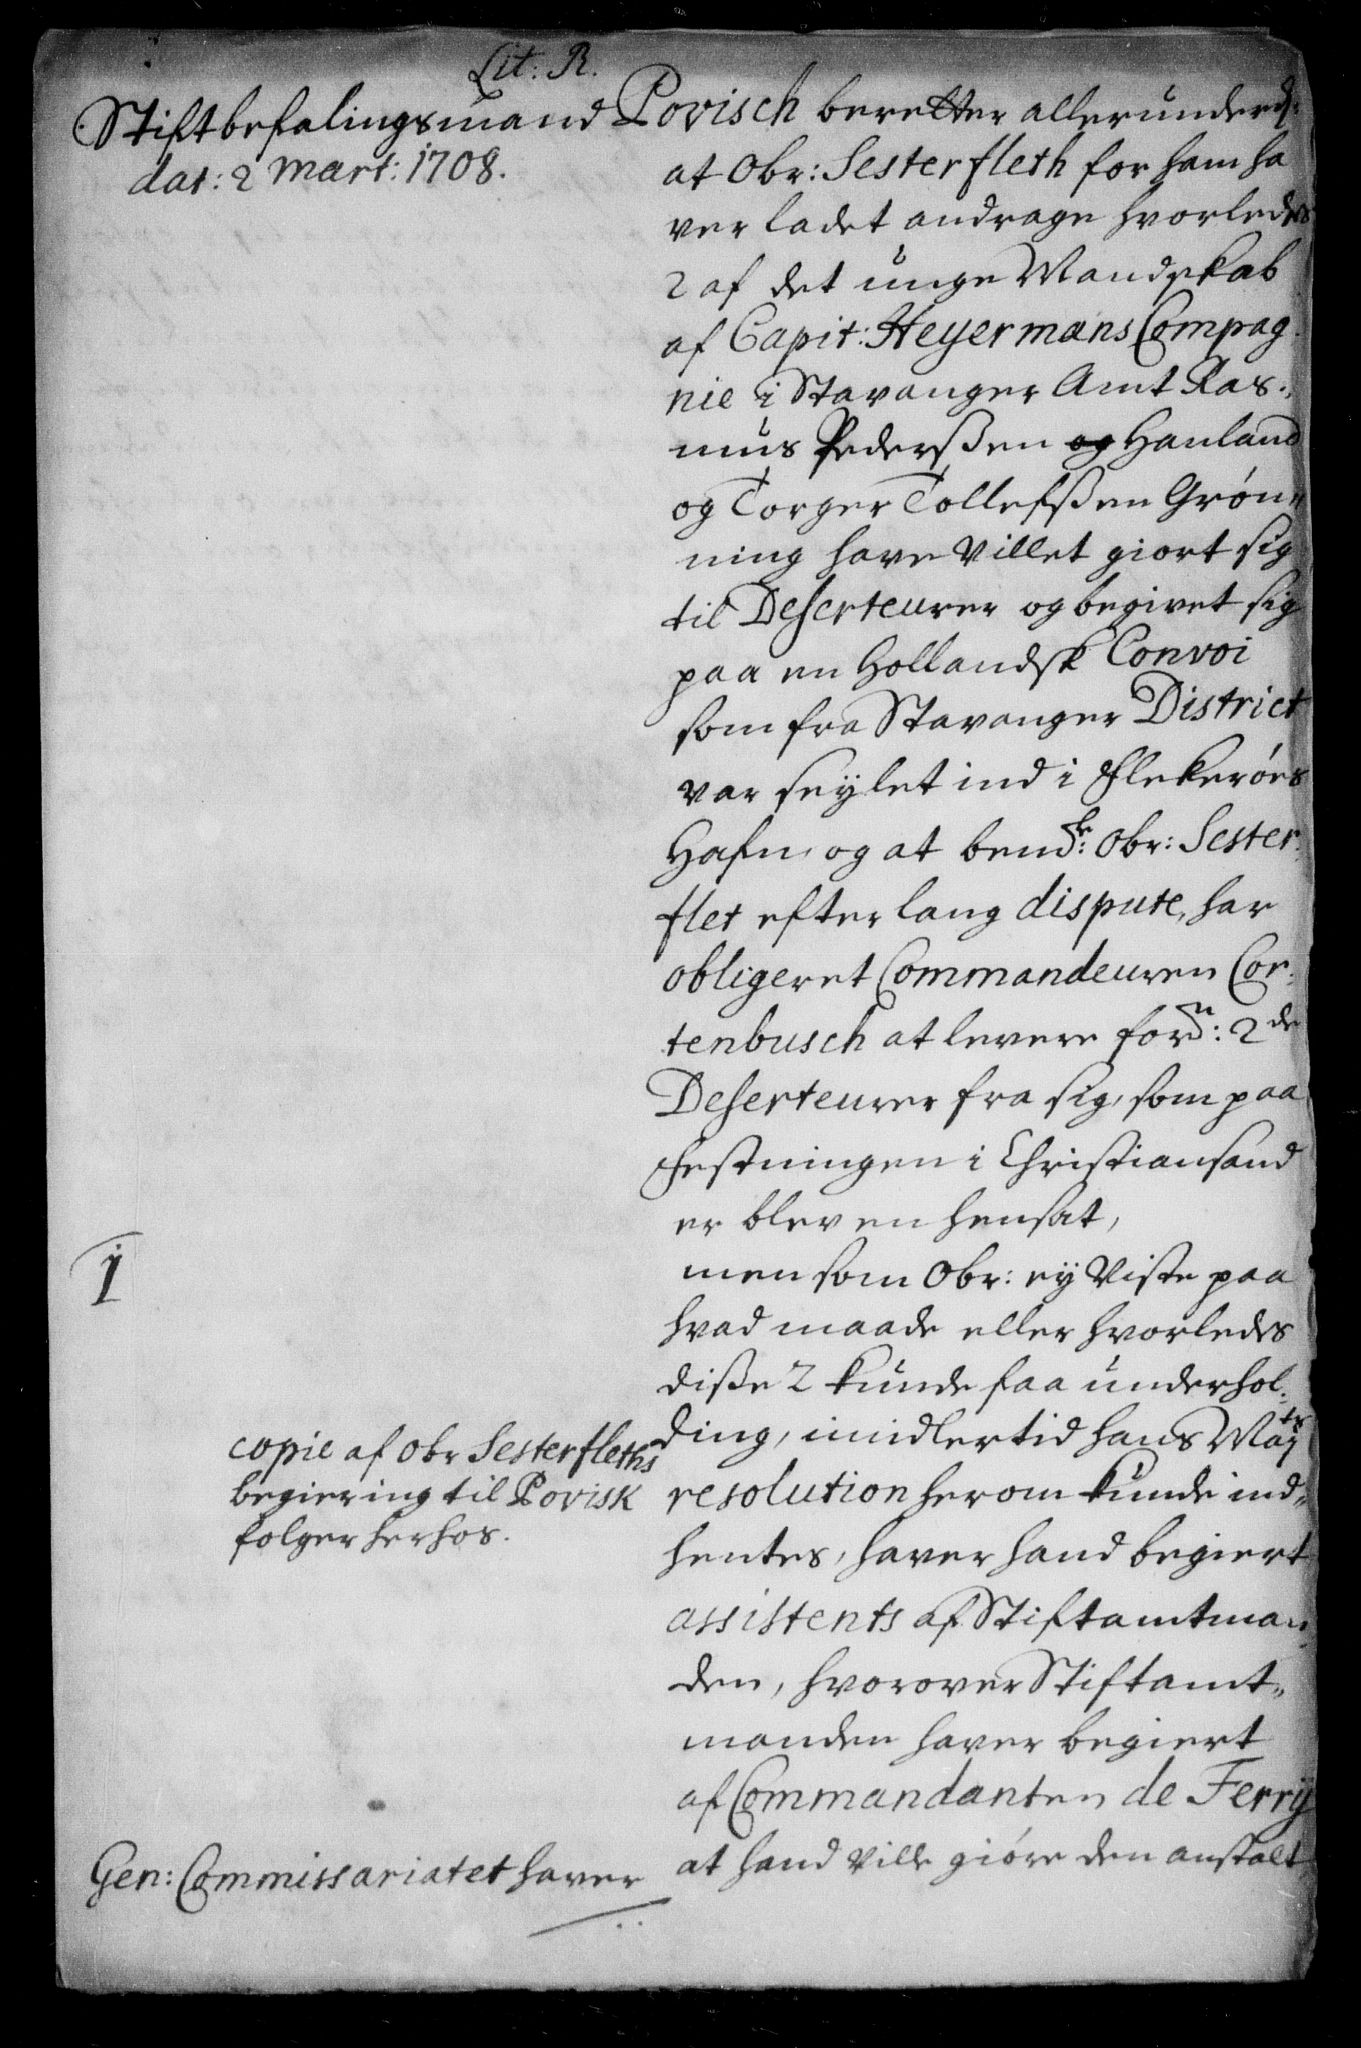 Lit: R.
Stiftbefalingsmand Povisch beretter allerunderd:
dat: 2 Mart: 1708.
at Obr: Sesterfleth for ham ha
ver ladet andrage hvorledes
2 af det unge Mandskab
af Capit: Heyermans Compag
nie i Stavanger Amt Ras-
mus Pederßen og Hauland
og Torger Tollefßen Grøn-
ning have villet giort sig
til Deserteurer og begivet sig
paa en Hollandsk Convoi
som fra Stavanger District
var seylet ind i Flekerøes
Hafn, og at bemd^te: Obr: Sester-
flet efter lang dispute, har
obligeret Commandeuren Cor-
tenbusch at levere ford^n: 2^de
Deserteurer fra sig, som paa
Festningen i Christiansand
er bleven hensat,
men som Obr: ey viste paa
hvad maade eller hvorledes
diße 2 kunde faa underhol-
ding, imidlertid hans May^ts
resolution herom kunde ind-
hentes, haver hand begiert
assistents af Stiftamtman
den, hvorover Stiftamt-
manden haver begiert
af Commandanten de Ferry
at hand ville giøre den anstalt
1
copie af Obr Sesterfleths
begiering til Povisk
folger herhos.
Gen: Commissariatet haver